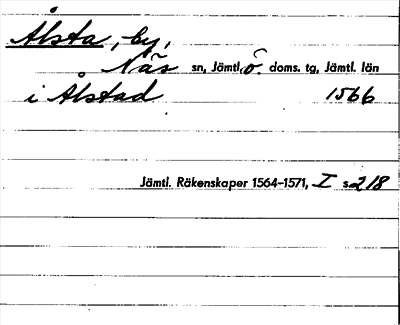 Ålsta, by,
Näs sn, Jämtl. ö. doms. tg, Jämtl. län
i Ålstad 1566
Jämtl. Räkenskaper 1564-1571, I s. 218